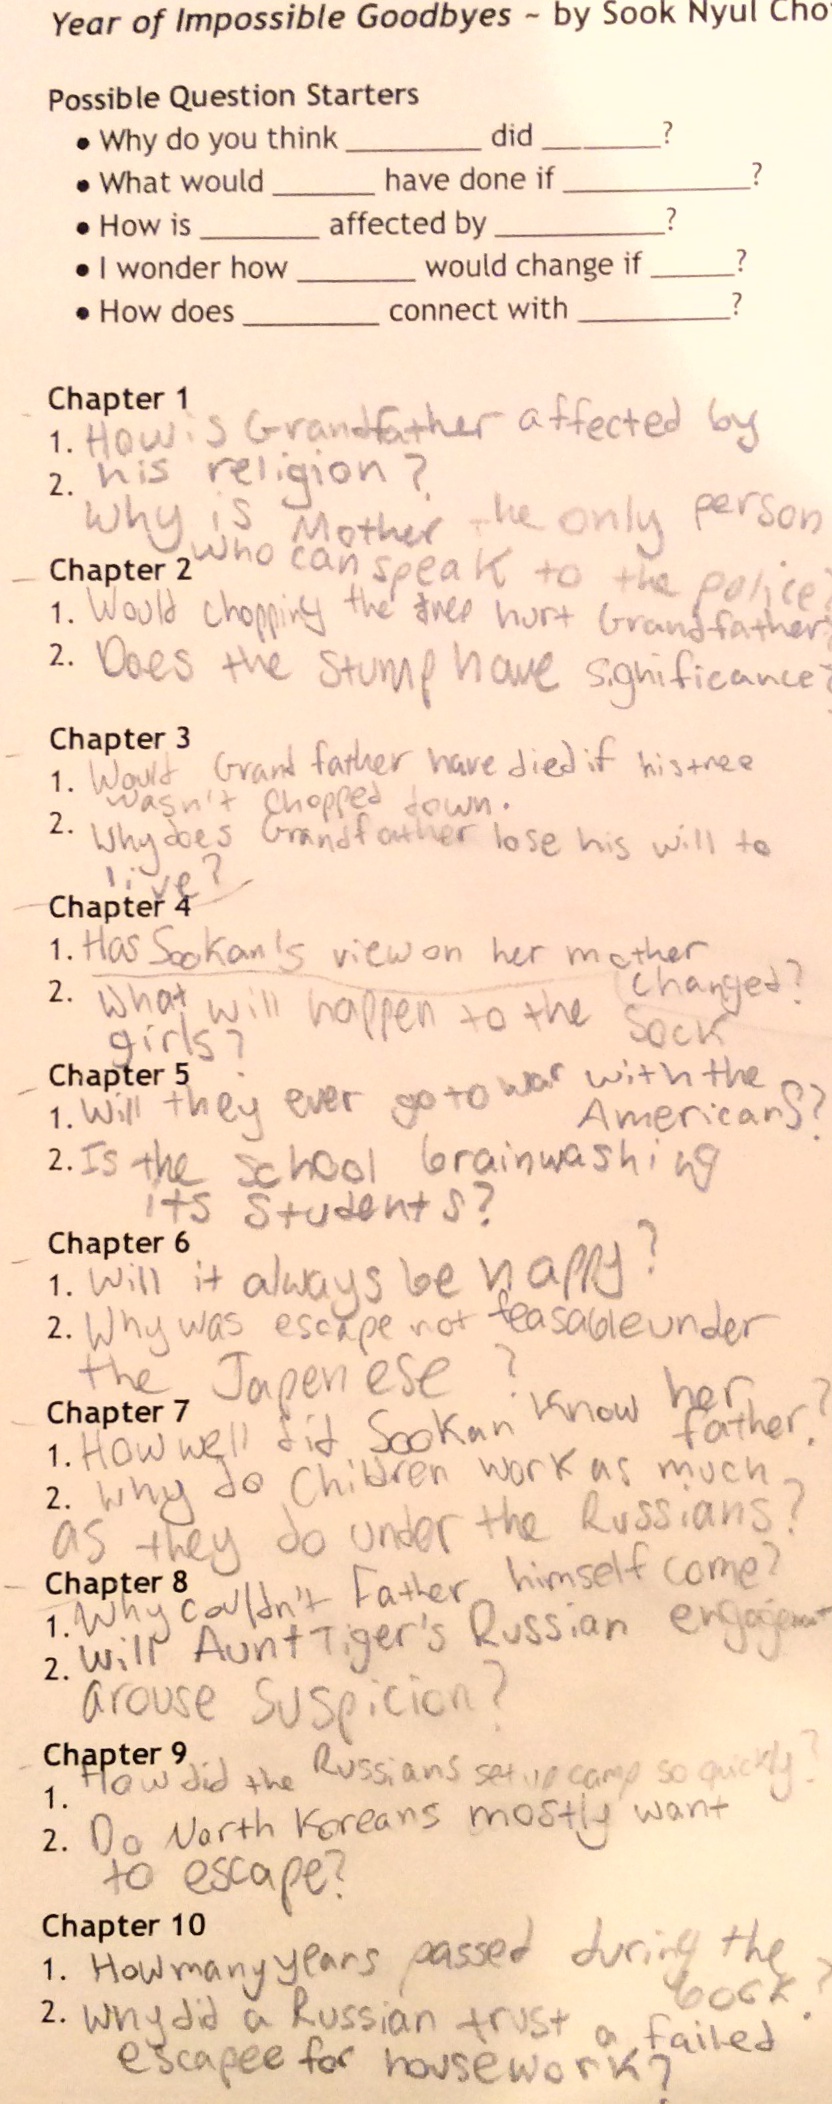 Year of Impossible Goodbyes ~ by Sook Nyul Cho
Possible Question Starters
• Why do you think ________ did ________?
• What would ______ have done if ___________?
• How is _______ affected by __________?
• I wonder how _______ would change if _____?
• How does ________ connect with _________?
Chapter 1
1. How is Grandfather affected by
his religion?
2.
Why is Mother the only person
who can speak to the police?
Chapter 2
1. Would chopping the tree hurt Grandfather?
2. Does the stump have significance?
Chapter 3
1. Would Grandfather have died if his tree
wasn't chopped down.
2. Why does Grandfather lose his will to
live?
Chapter 4
1. Has Sookan's view on her mother
changed?
2. What will happen to the sock
girls?
Chapter 5
1. Will they ever go to war with the
Americans?
2. Is the school brainwashing
its students?
Chapter 6
1. Will it always be happy?
2. Why was escape not feasable under
the Japenese?
Chapter 7
1. How well did Sookan know her
father?
2. Why do Children work as much
as they do under the Russians?
Chapter 8
1. Why couldn't Father himself come?
2. Will Aunt Tiger's Russian engagement
arouse suspicion?
Chapter 9
1. How did the Russians set up camp so quickly?
2. Do North Koreans mostly want
to escape?
Chapter 10
1. How many years passed during the
book?
2. Why did a Russian trust a failed
escapee for housework?